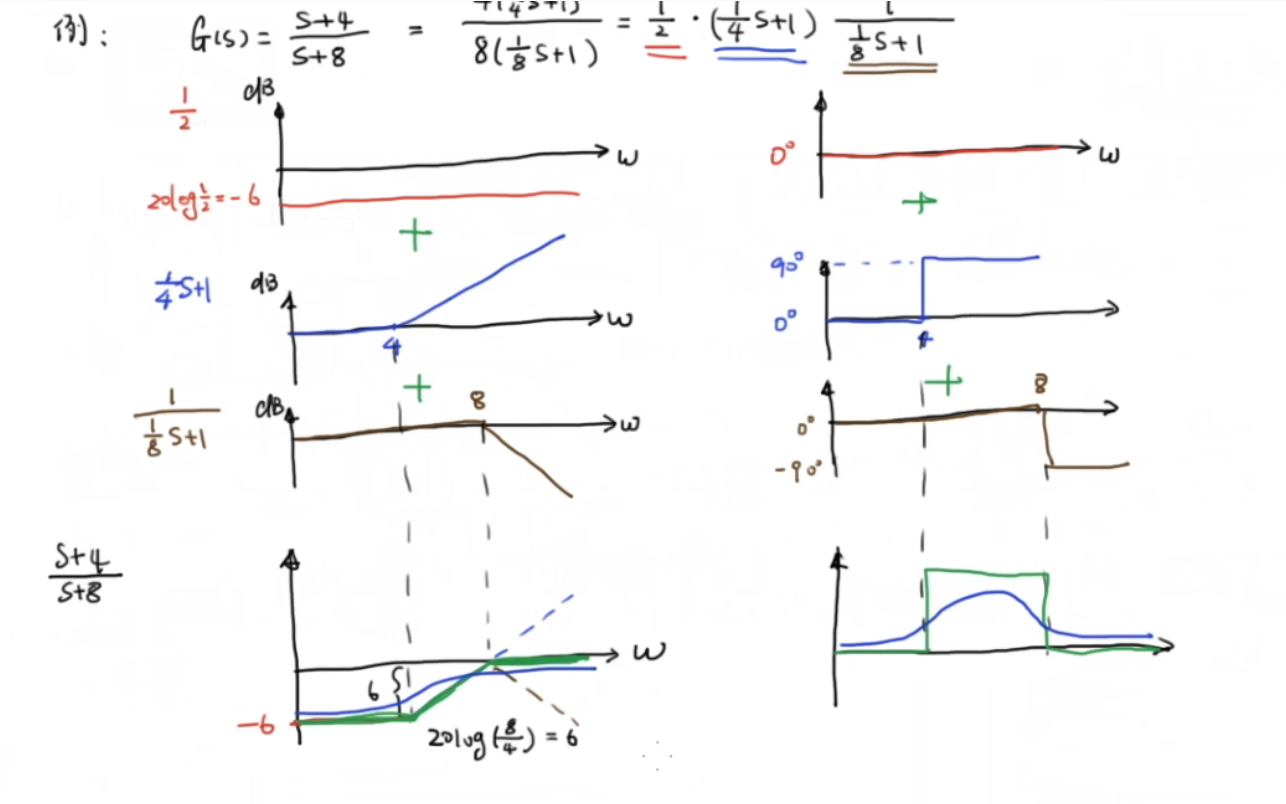 例: G(s) = (s+4)/(s+8) = 4(1/4 s+1)/8(1/8 s+1) = 1/2 · (1/4 s+1) 1/(1/8 s+1)
1/2 dB w 0° w
20log 1/2 = -6
+ +
1/4 s+1 dB w 90°
0°
4 4
+ +
1/(1/8 s+1) dB 8 w 0° 8
-90°
(s+4)/(s+8)
w
6
-6
20log(8/4) = 6